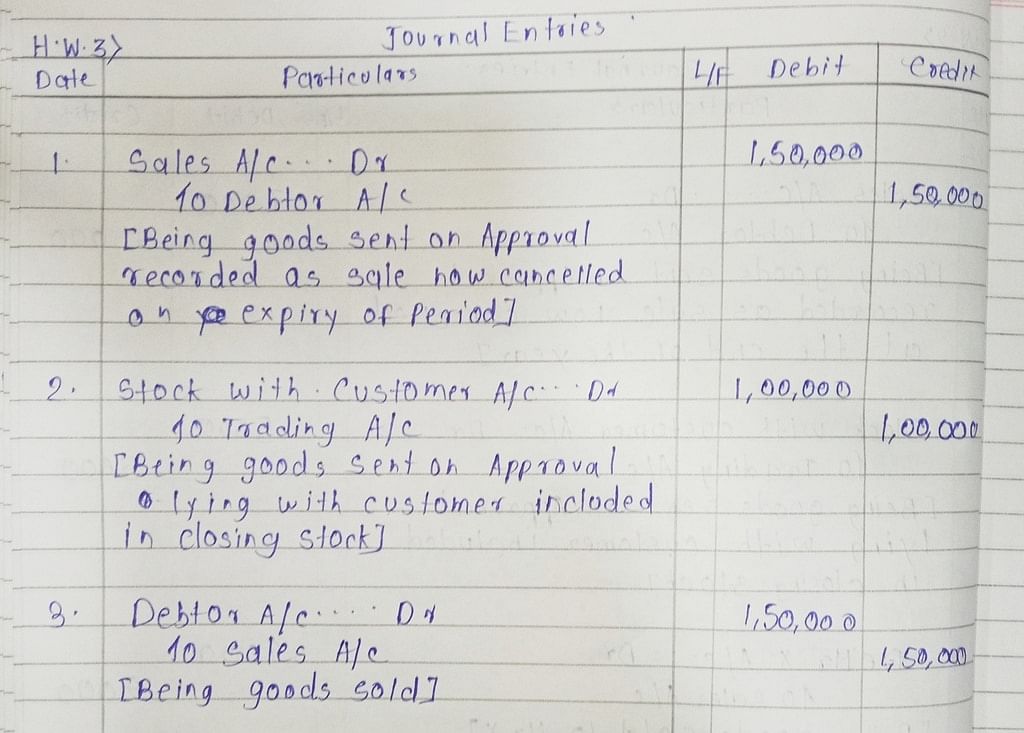 Journal Entries
H.W.3>
Date Particulars L/F Debit Credit
1. Sales A/c... Dr 1,50,000
To Debtor A/c 1,50,000
[Being goods sent on Approval
recorded as sale now cancelled
on expiry of Period]
2. Stock with Customer A/c... Dr 1,00,000
To Trading A/c 1,00,000
[Being goods sent on Approval
lying with customer included
in closing stock]
3. Debtor A/c.... Dr 1,50,000
To Sales A/c 1,50,000
[Being goods sold]